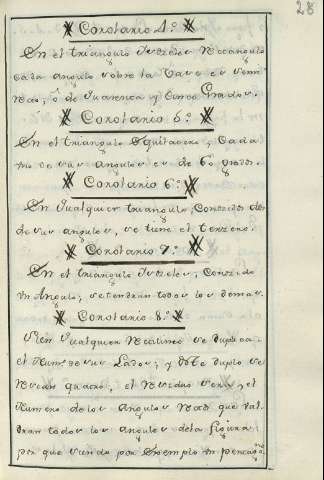 28
Corolario 4.º
En el triangulo Isoceles Rectangulo
cada angulo sobre la Vase es Semi
Recto, ô de Quarenta y Cinco Grados.
Corolario 5.º
En el triangulo Equilatero, Cada
uno de sus Angulos es de 60 grados.
Corolario 6.º
En qualquier triangulo, Conocidos dos
de sus angulos, se tiene el tercero.
Corolario 7.º
En el triangulo Isoceles, Conocido
un Angulo, se tendran todos los demas.
Corolario 8.º
Si en qualquier Rectilineo se duplica
el Num.º de sus Lados, y deste duplo se
Restan quatro, el Residuo sera, el
Numero de los Angulos Rectos que val-
dran todos los angulos dela figura
por que siendo por Exemplo un pentagono